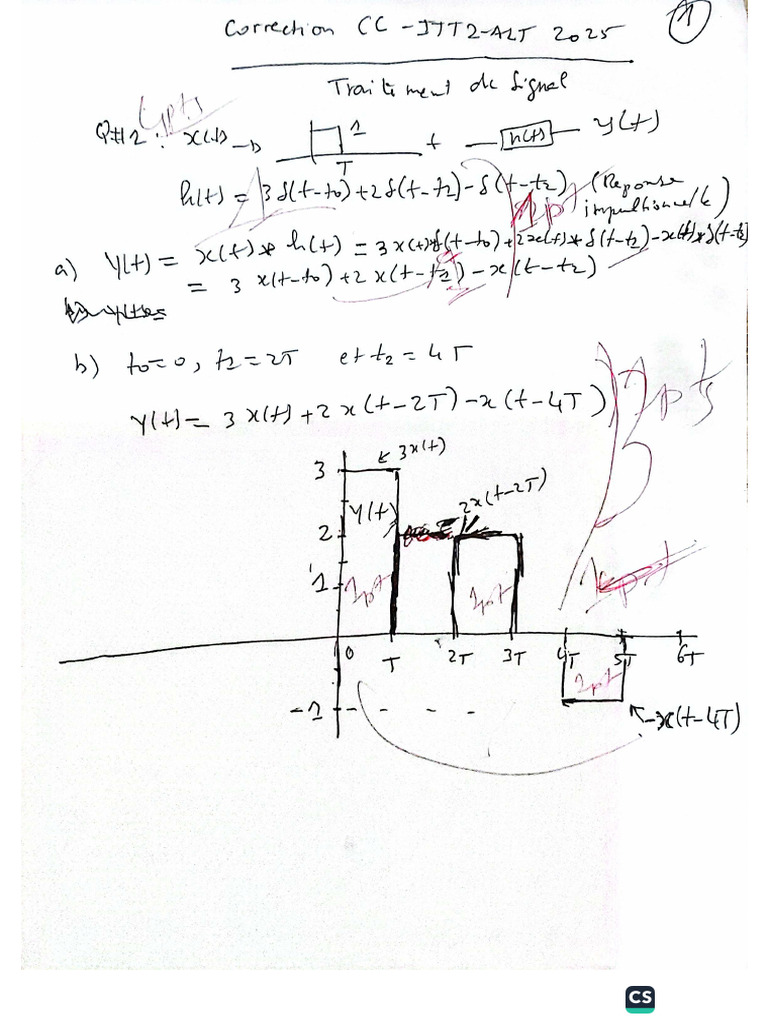 Correction CC - ITT2-ALT 2025
1
Traitement de Signal
Q#12 : x(t) → 1 T + h(t) y(t)
h(t) = 3 δ(t-t0) + 2 δ(t-t2) - δ(t-t2) (Reponse impulsionnelle)
1pt
a) y(t) = x(t) * h(t) = 3 x(t) * δ(t-t0) + 2 x(t) * δ(t-t2) - x(t) * δ(t-t2)
= 3 x(t-t0) + 2 x(t-t2) - x(t-t2)
b) t0=0, t2=2T et t2=4T
y(t) = 3 x(t) + 2 x(t-2T) - x(t-4T)
3 3x(t)
2x(t-2T)
2 y(t)
1 1pt 1pt
0 T 2T 3T 4T 5T 6T
1pt
-1 -x(t-4T)
CS